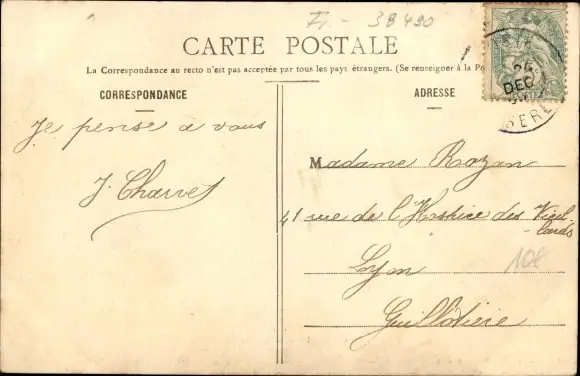 Fr. - 38490
CARTE POSTALE
La Correspondance au recto n'est pas acceptée par tous les pays étrangers. (Se renseigner à la Po
CORRESPONDANCE
ADRESSE
DEC
ISERE
Je pense a vous
J. Charvet
Madame Rozan
41 rue de l'Hospice des Vieil-
lards
108
Lyon
Guillotiere